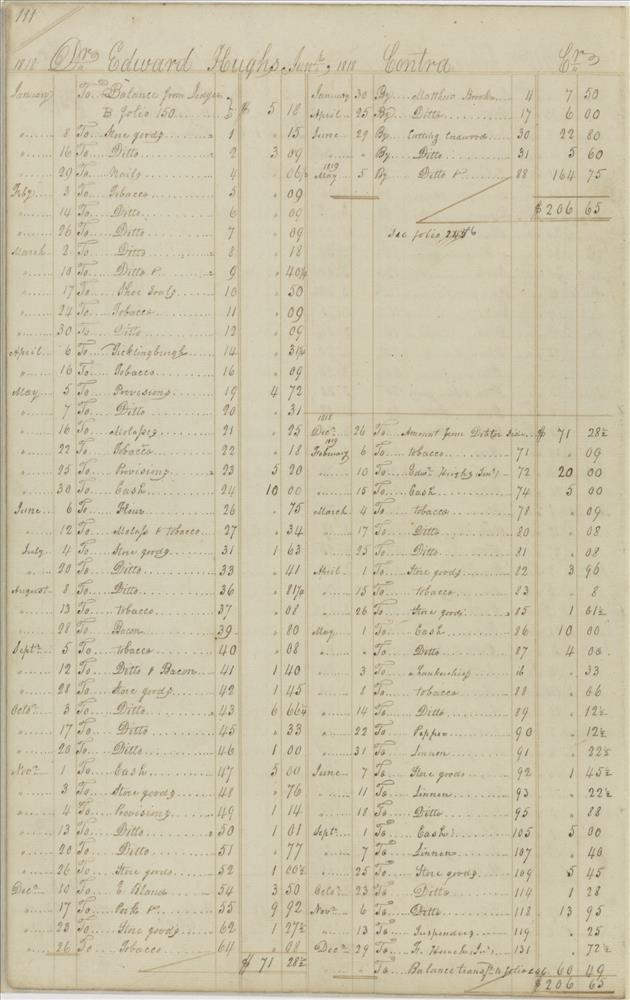 111
1818 Dr Edward Hughs Junr.
January To Balance from Ledger
B folio 150 $ 5 18
" 8 To Store goods 1 " 15
" 16 To Ditto 2 3 09
" 29 To Nails 4 " 06¼
Feby 3 To Tobacco 5 " 09
" 14 To Ditto 6 " 09
" 26 To Ditto 7 " 09
March 2 To Ditto 8 " 18
" 10 To Ditto & 9 " 40½
" 17 To Shoe Soals 10 " 50
" 24 To Tobacco 11 " 09
" 30 To Ditto 12 " 09
April 6 To Ticklingburgh 14 " 31¼
" 16 To Tobacco 16 " 09
May 5 To Provisions 19 4 72
" 7 To Ditto 20 " 31
" 16 To Molasses 21 " 25
" 22 To Tobacco 22 " 18
" 25 To Provisions 23 5 20
" 30 To Cash 24 10 00
June 6 To Flour 26 " 75
" 12 To Molass & tobacco 27 " 34
July 4 To Store goods 31 1 63
" 20 To Ditto 33 " 41
August 8 To Ditto 36 " 81¼
" 13 To tobacco 37 " 08
" 28 To Bacon 39 " 80
Septr 5 To tobacco 40 " 08
" 12 To Ditto & Bacon 41 1 40
" 28 To Store goods 42 1 45
Octor 3 To Ditto 43 6 66¼
" 17 To Ditto 45 " 33
" 20 To Ditto 46 1 00
Novr 1 To Cash 47 5 00
" 3 To Store goods 48 " 76
" 4 To Provisions 49 1 14
" 13 To Ditto 50 1 01
" 20 To Ditto 51 " 77
" 26 To Store goods 52 1 00½
Decr 10 To E. Bland 54 3 50
" 17 To Pork & 55 9 92
" 23 To Store goods 62 1 27½
" 26 To Tobacco 64 " 08
$ 71 28½
1818 Contra Cr
January 30 By Matthew Brooks 4 7 50
April 25 By Ditto 17 6 00
June 29 By Cutting Cordwood 30 22 80
" " By Ditto 31 5 60
1819
May 5 By Ditto & 88 164 75
$ 206 65
See folio
1818
Decr 26 To Amount from Debtor side $ 71 28½
1819
February 6 To tobacco 71 " 09
" 10 To Edwd Hughs Senr 72 20 00
" 15 To Cash 74 5 00
March 4 To tobacco 78 " 09
" 17 To Ditto 80 " 08
" 25 To Ditto 81 " 08
April 1 To Store goods 82 3 96
" 15 To tobacco 83 " 8
" 26 To Store goods 85 1 01½
May 1 To Cash 86 10 00
" " To Ditto 87 4 00
" 3 To Hankerchief " 33
" 8 To tobacco 88 " 66
" 14 To Ditto 89 " 12½
" 22 To Pepper 90 " 12½
" 31 To Linnen 91 " 22½
June 7 To Store goods 92 1 45½
" 11 To Linnen 93 " 22½
" 18 To Ditto 95 " 88
Septr 1 To Cash 105 5 00
" 7 To Linnen 107 " 40
" 25 To Store goods 109 5 45
Octor 23 To Ditto 114 1 28
Novr 6 To Ditto 118 13 95
" 13 To Suspenders 119 " 25
Decr 29 To 131 " 72½
" To Balance transfd to folio 60 49
$ 206 65